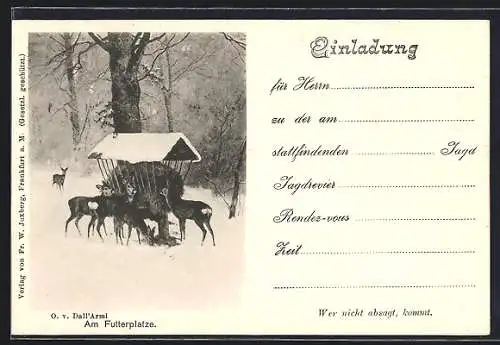 Verlag von Fr. W. Juxberg, Frankfurt a. M. (Gesetzl. geschützt.)
O. v. Dall'Armi
Am Futterplatze.
Einladung
für Herrn
zu der am
stattfindenden Jagd
Jagdrevier
Rendez-vous
Zeit
Wer nicht absagt, kommt.